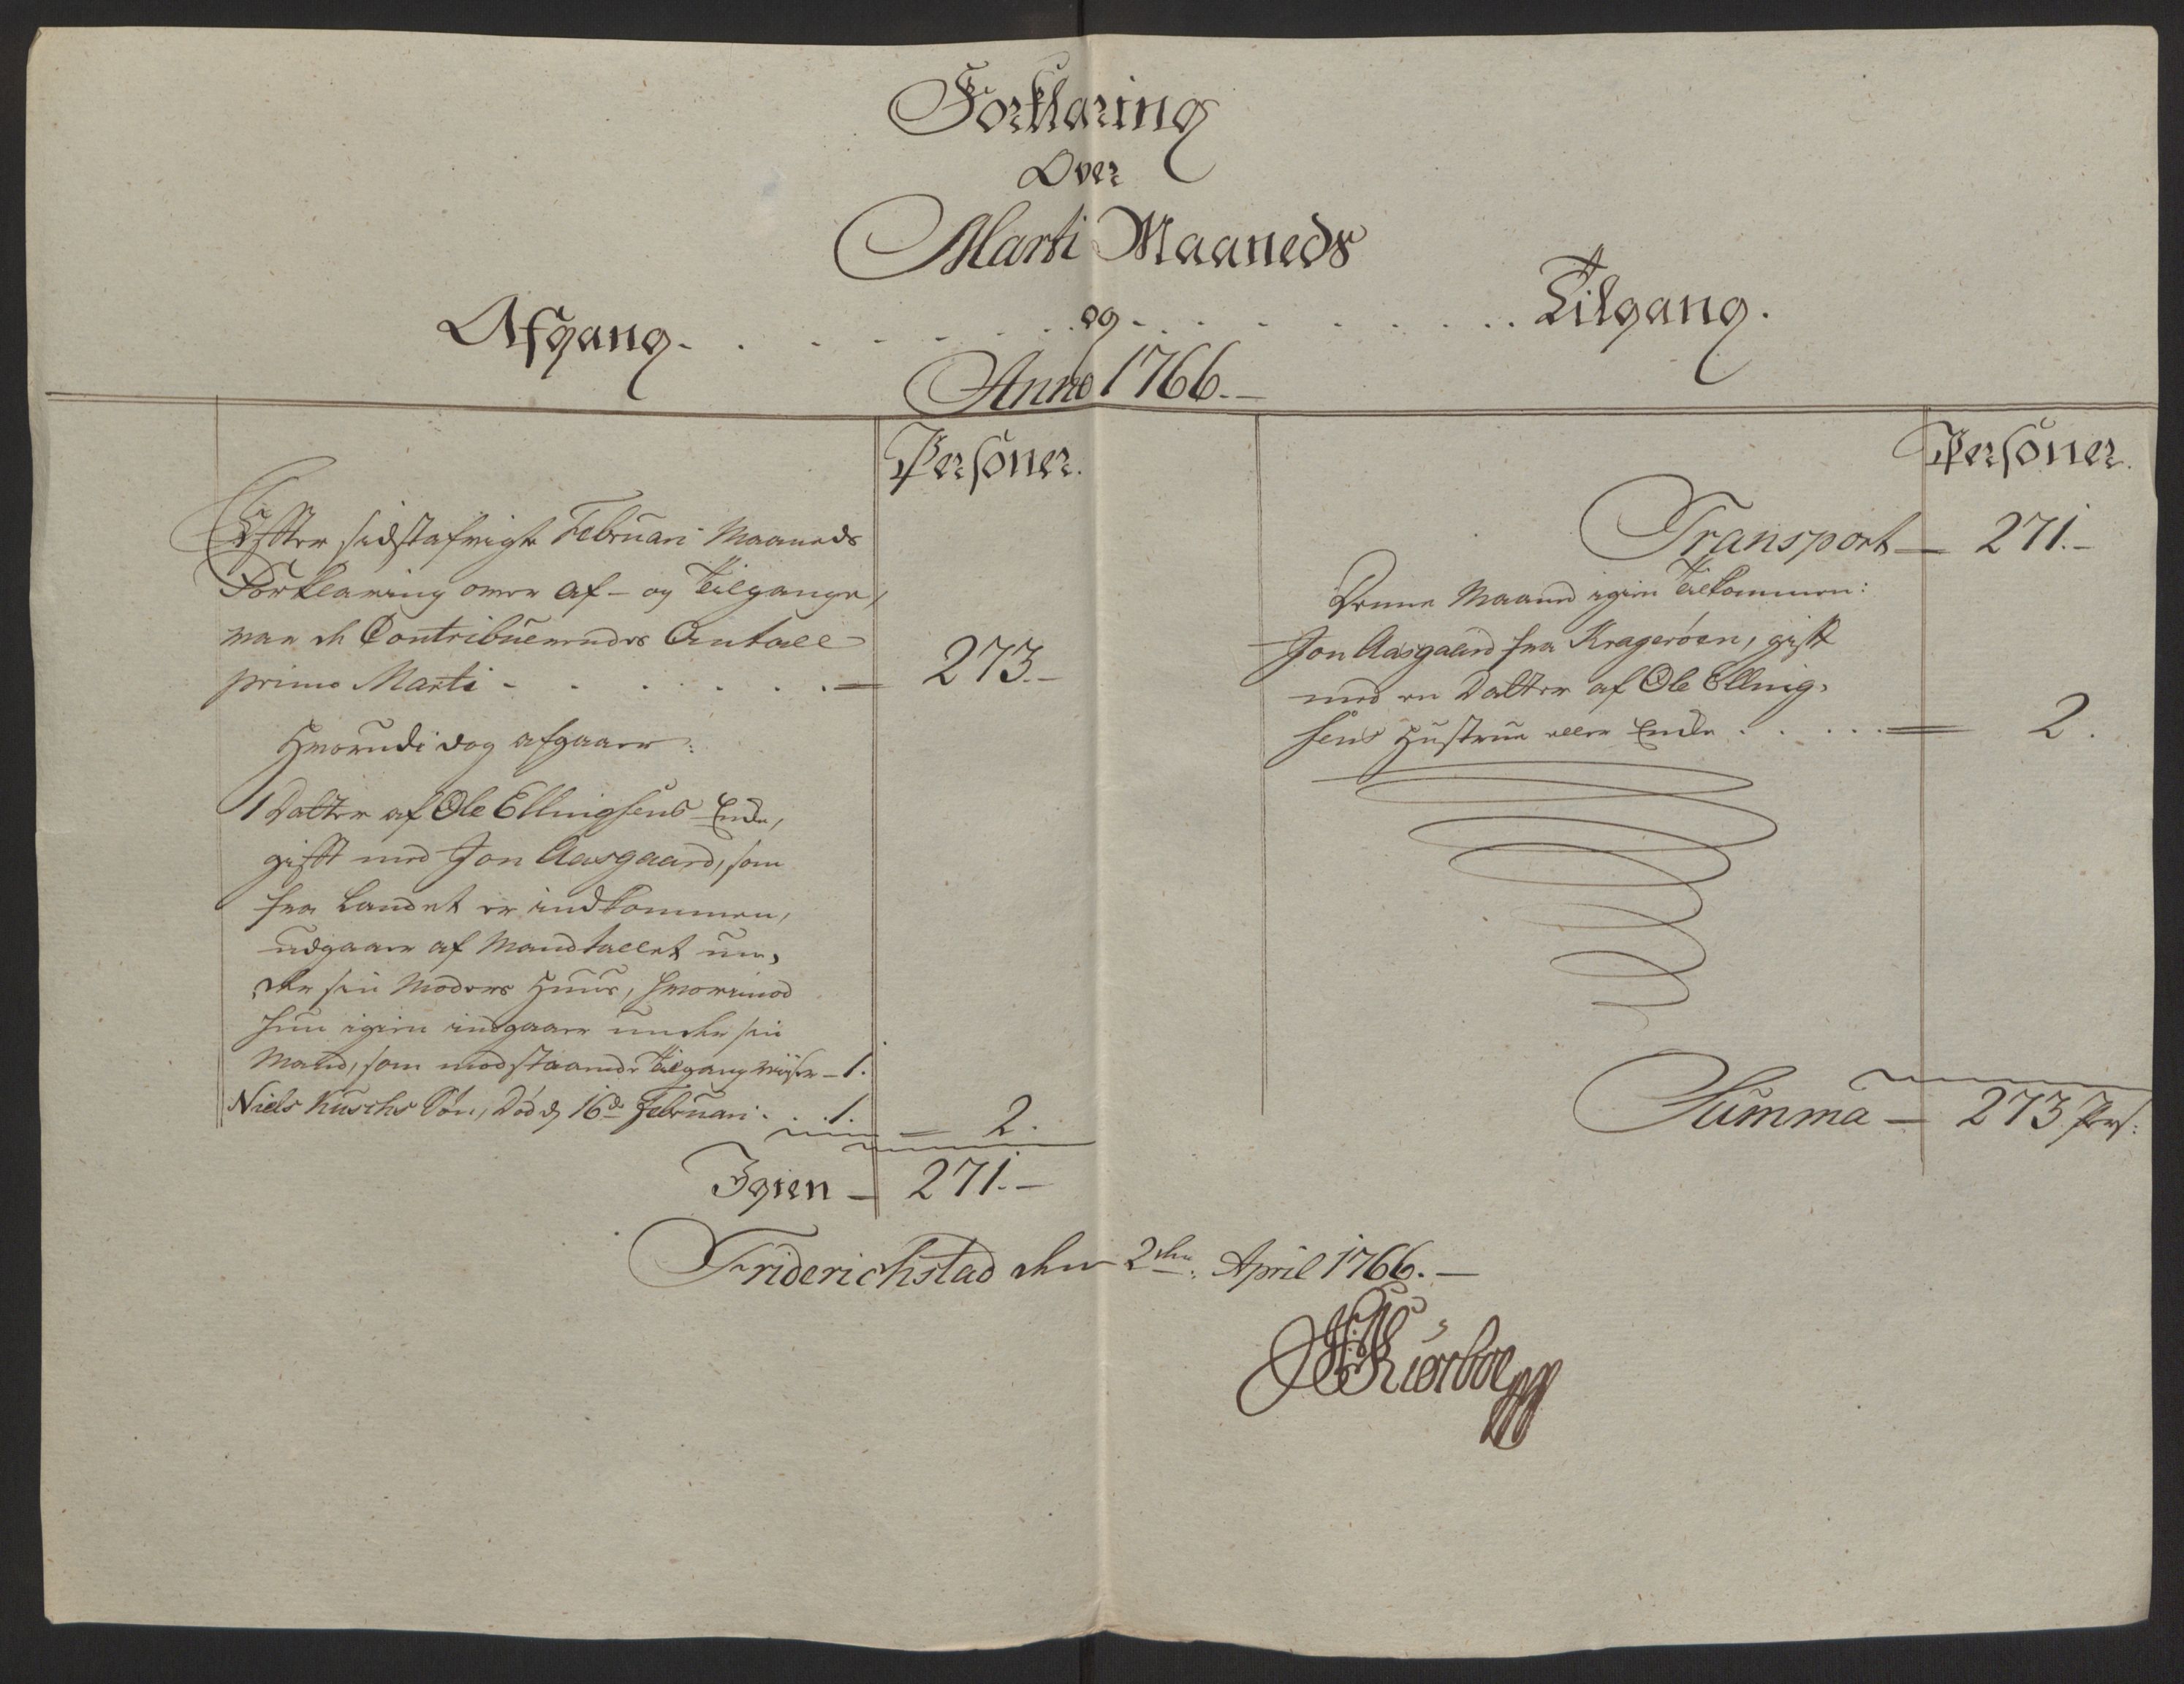 Forklaring
Over
Marti Maaneds
Afgang. . . . . . . og . . . . . . . Tilgang.
Anno 1766.
Personer.
Effter sidstafvigte Februari Maaneds
Forklaring over af- og Tilgange,
var de Contribuerendes Antall
primo Marti - . . . . . . 273.-
Hvorudi dog afgaaer:
1 Datter af Ole Ellingsens Enke,
gifft med Jon Aasgaard, som
fra Landet er indkommen,
udgaaer af Mandtallet un-
der sin Moders Huus, hvorimod
hun igien indgaaer under sin
Mand, som modstaaende Tilgang viiser - 1.
Niels Kuschs Søn, død d. 16de Februari . . . 1. 2.
Igien - 271.-
Personer.
Transport - 271.-
Denne Maaned igien tilkommen:
Jon Aasgaard fra Kragerøen, gift
med en Datter af Ole Elling-
sens Hustrue eller Enke . . . . . 2.
Summa - 273 Pers:
Friderichstad den 2den April 1766.-